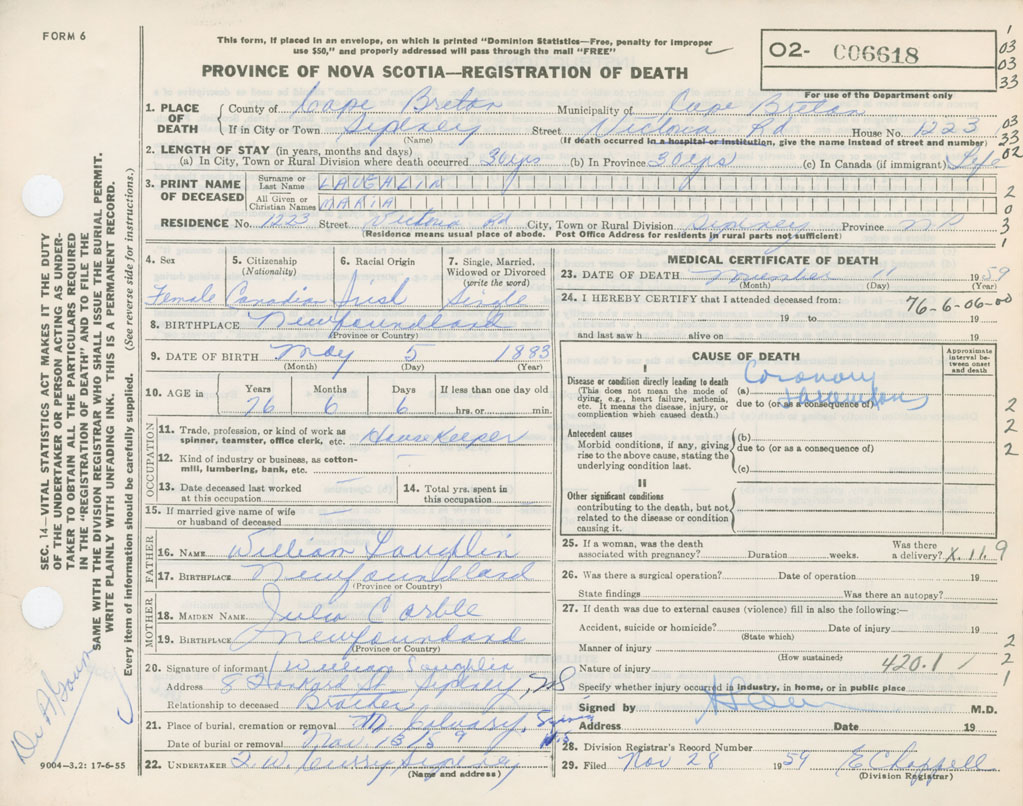 FORM 6
This form, if placed in an envelope, on which is printed "Dominion Statistics—Free, penalty for improper
use $50," and properly addressed will pass through the mail "FREE"
PROVINCE OF NOVA SCOTIA—REGISTRATION OF DEATH
02- C06618
For use of the Department only
1
03
03
33
1. PLACE OF DEATH
County of Cape Breton Municipality of Cape Breton
If in City or Town Sydney Street Victoria Rd House No. 1223
(Name) (If death occurred in a hospital or institution, give the name instead of street and number)
03
33
02
2. LENGTH OF STAY (in years, months and days)
(a) In City, Town or Rural Division where death occurred 30 yrs (b) In Province 30 yrs (c) In Canada (if immigrant) Life
3. PRINT NAME OF DECEASED
Surname or Last Name LAUGHLIN
All Given or Christian Names MARIA
RESIDENCE No. 1223 Street Victoria Rd City, Town or Rural Division Sydney Province NS
(Residence means usual place of abode. Post Office Address for residents in rural parts not sufficient)
2
0
3
1
4. Sex
Female
5. Citizenship (Nationality)
Canadian
6. Racial Origin
Irish
7. Single, Married, Widowed or Divorced (write the word)
Single
8. BIRTHPLACE Newfoundland
(Province or Country)
9. DATE OF BIRTH May 5 1883
(Month) (Day) (Year)
10. AGE in
Years Months Days If less than one day old
76 6 6 hrs. or min.
OCCUPATION
11. Trade, profession, or kind of work as
spinner, teamster, office clerk, etc. HouseKeeper
12. Kind of industry or business, as cotton-
mill, lumbering, bank, etc. —
13. Date deceased last worked
at this occupation —
14. Total yrs. spent in
this occupation
15. If married give name of wife
or husband of deceased —
FATHER
16. NAME William Laughlin
17. BIRTHPLACE Newfoundland
(Province or Country)
MOTHER
18. MAIDEN NAME Julia
19. BIRTHPLACE Newfoundland
(Province or Country)
20. Signature of informant William Laughlin
Address 8 St Sydney, NS
Relationship to deceased Brother
21. Place of burial, cremation or removal Mt. Calvary, Sydney N.S
Date of burial or removal Nov. 13/5
22. UNDERTAKER T. W. Curry Sydney
(Name and address)
9004—3.2: 17-6-55
MEDICAL CERTIFICATE OF DEATH
23. DATE OF DEATH 11 1959
(Month) (Day) (Year)
24. I HEREBY CERTIFY that I attended deceased from:
76-6-06-00
19 to 19
and last saw h alive on 19
CAUSE OF DEATH
Approximate interval between onset and death
I
Disease or condition directly leading to death
(This does not mean the mode of
dying, e.g., heart failure, asthenia,
etc. It means the disease, injury, or
complication which caused death.)
(a) Coronary
due to (or as a consequence of)
Antecedent causes
Morbid conditions, if any, giving
rise to the above cause, stating the
underlying condition last.
(b)
due to (or as a consequence of)
(c)
II
Other significant conditions
contributing to the death, but not
related to the disease or condition
causing it.
2
2
2
25. If a woman, was the death
associated with pregnancy? Duration weeks. Was there
a delivery? X.11.9
26. Was there a surgical operation? Date of operation 19
State findings Was there an autopsy?
27. If death was due to external causes (violence) fill in also the following:—
Accident, suicide or homicide? Date of injury 19
(State which)
Manner of injury
(How sustained)
Nature of injury 420.1
Specify whether injury occurred in industry, in home, or in public place
2
2
1
Signed by M.D.
Address Date 19
28. Division Registrar's Record Number
29. Filed Nov 28 1959 E Chappell
(Division Registrar)
SEC. 14—VITAL STATISTICS ACT MAKES IT THE DUTY
OF THE UNDERTAKER OR PERSON ACTING AS UNDER-
TAKER TO OBTAIN ALL THE PARTICULARS REQUIRED
IN THE "REGISTRATION OF DEATH" AND TO FILE THE
SAME WITH THE DIVISION REGISTRAR WHO SHALL ISSUE THE BURIAL PERMIT.
WRITE PLAINLY WITH UNFADING INK. THIS IS A PERMANENT RECORD.
Every item of information should be carefully supplied. (See reverse side for instructions.)